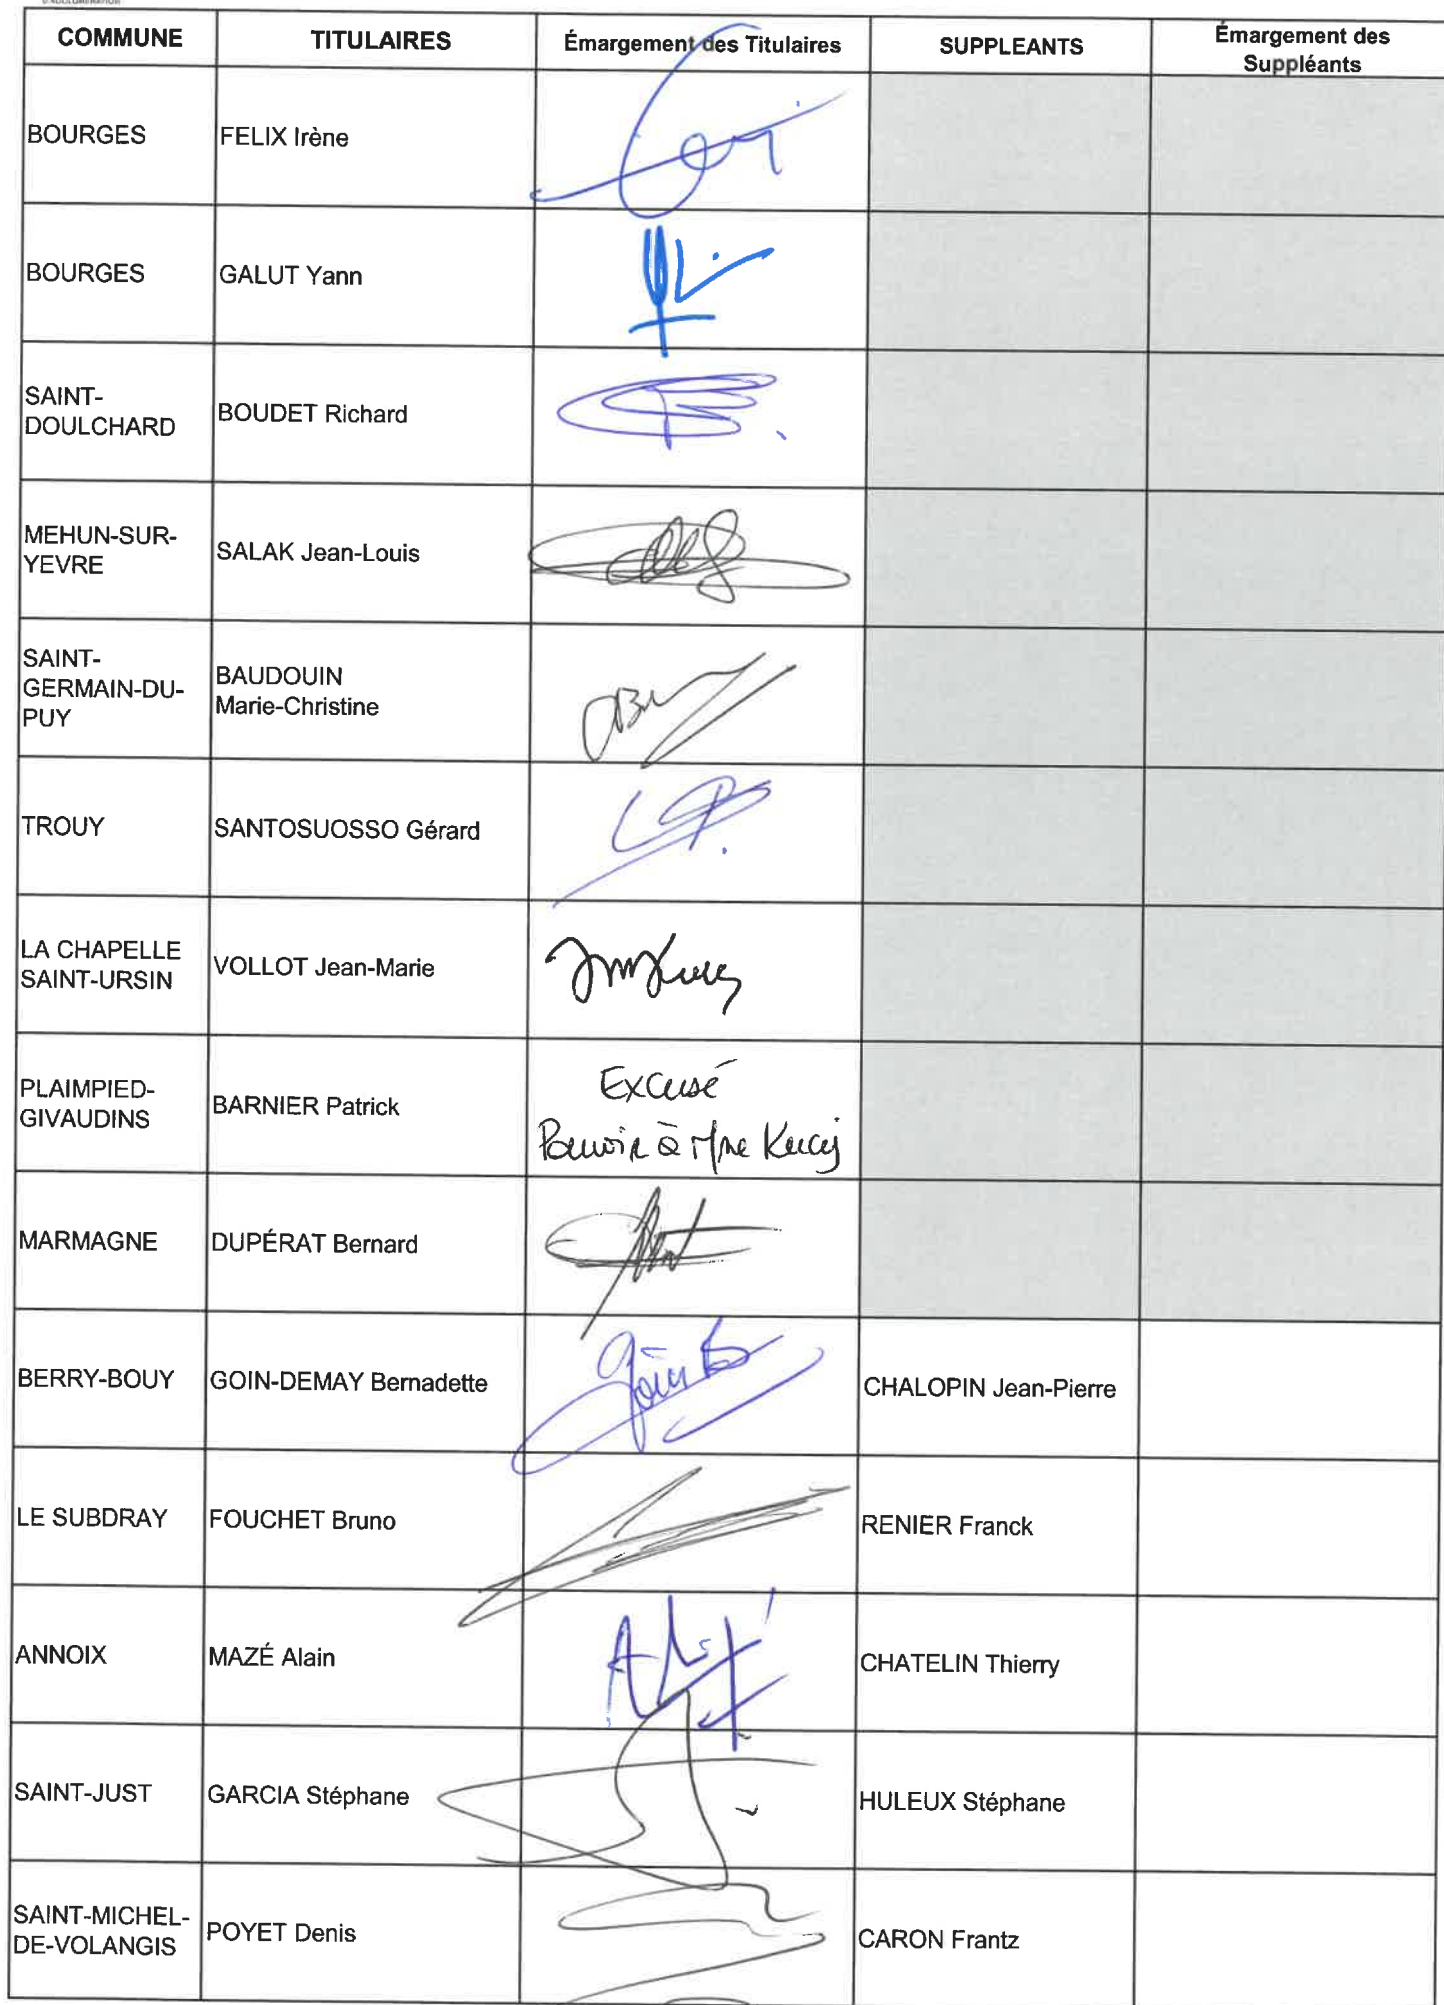 COMMUNE TITULAIRES Émargement des Titulaires SUPPLEANTS Émargement des
Suppléants
BOURGES FELIX Irène
BOURGES GALUT Yann
SAINT-
DOULCHARD BOUDET Richard
MEHUN-SUR-
YEVRE SALAK Jean-Louis
SAINT-
GERMAIN-DU-
PUY
BAUDOUIN
Marie-Christine
TROUY SANTOSUOSSO Gérard
LA CHAPELLE
SAINT-URSIN VOLLOT Jean-Marie
PLAIMPIED-
GIVAUDINS BARNIER Patrick
Excusé
Pouvoir à Mme
MARMAGNE DUPÉRAT Bernard
BERRY-BOUY GOIN-DEMAY Bernadette CHALOPIN Jean-Pierre
LE SUBDRAY FOUCHET Bruno RENIER Franck
ANNOIX MAZÉ Alain CHATELIN Thierry
SAINT-JUST GARCIA Stéphane HULEUX Stéphane
SAINT-MICHEL-
DE-VOLANGIS POYET Denis CARON Frantz